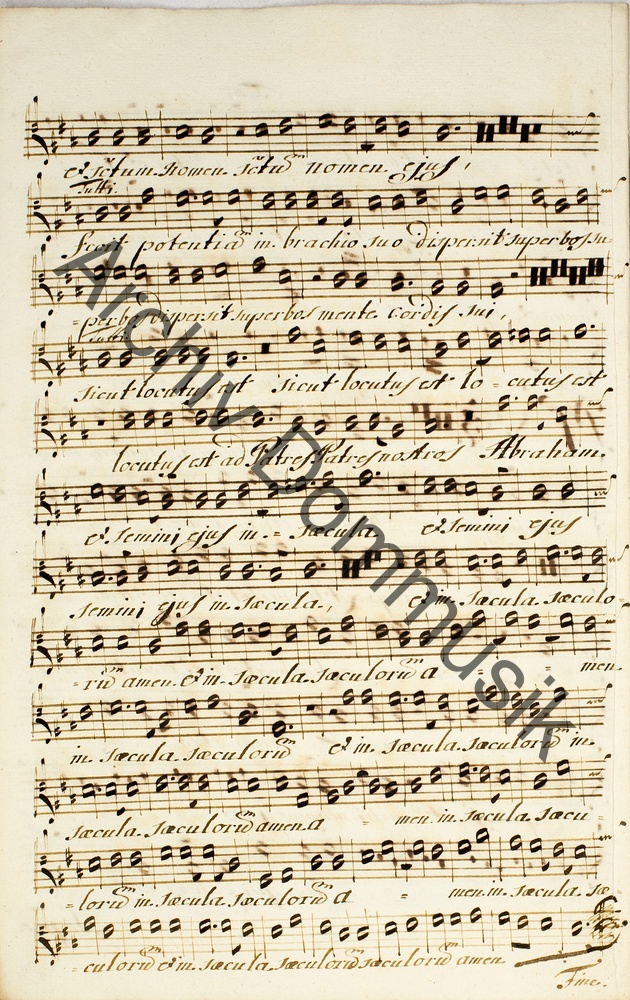 et sctum nomen sctum nomen ejus,
Tutti.
Fecit potentiam in brachio suo dispersit superbos su-
-perbos dispersit superbos mente Cordis sui,
Tutti
sicut locutus est sicut locutus est lo - cutus est
locutus est ad Patres Patres nostros Abraham.
et semini ejus in - sæcula et semini ejus
semini ejus in sæcula, et in sæcula sæculo-
-rum amen et in sæcula sæculorum a - - men
in sæcula sæculorum et in sæcula sæculorum in
sæcula sæculorum amen a - men in sæcula sæcu-
-lorum in sæcula sæculorum a - men in sæcula sæ-
-culorum et in sæcula sæculorum sæculorum amen
Fine.
Archiv Dommusik